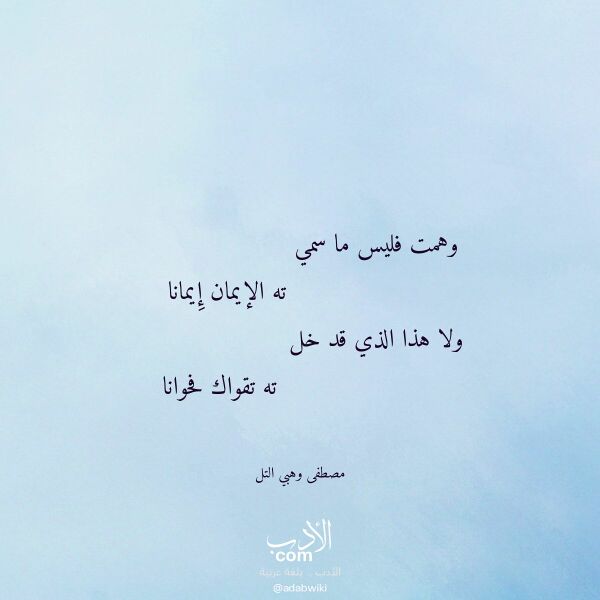 وهمت فليس ما سمي
ته الإيمان إِيمانا
ولا هذا الذي قد خل
ته تقواك فحوانا
مصطفى وهبي التل
الأدب
com
الأدب .. بلغة عربية
@adabwiki